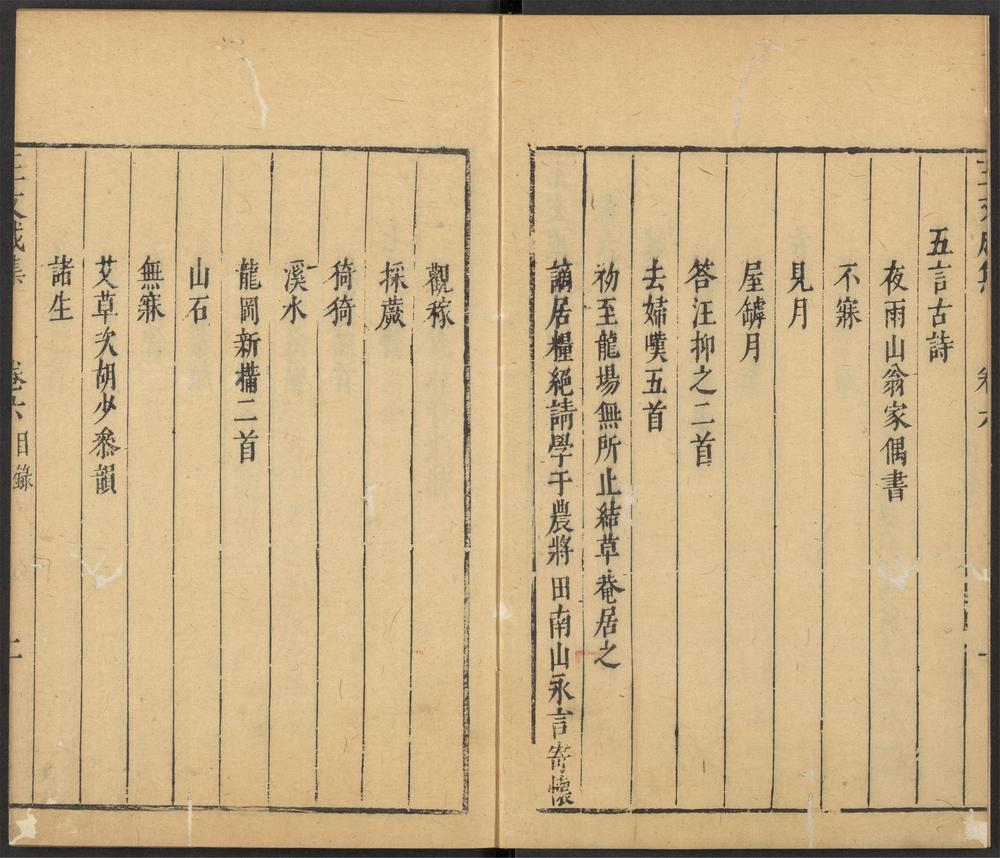 五言古詩
夜雨山翁家偶書
不寐
見月
屋罅月
答汪抑之二首
去婦嘆五首
初至龍場無所止結草菴居之
謫居糧絕請學于農將田南山永言寄懷
觀稼
採蕨
猗猗
溪水
龍岡新搆二首
山石
無寐
艾草次胡少叅韻
諸生
王文成集 卷六目錄 二